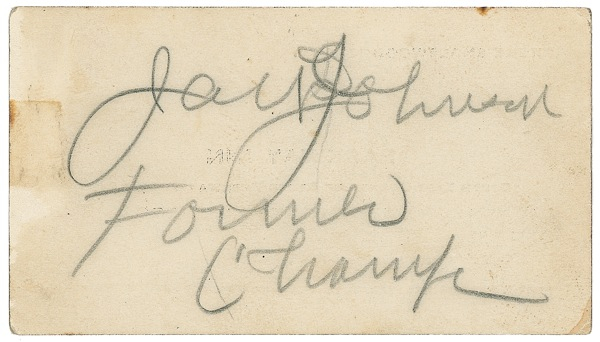 Jack Johnson
Former
Champ